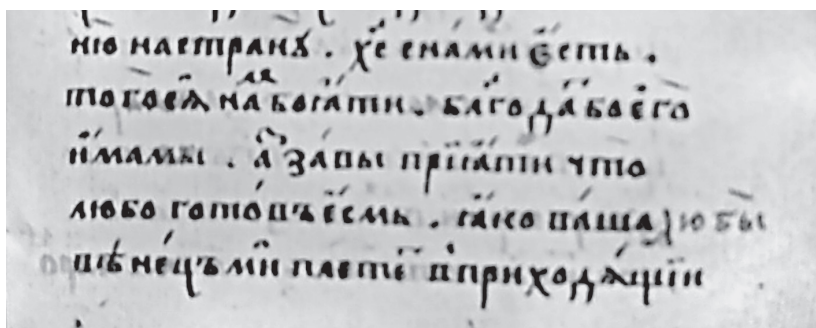 нїю настранѫ . х҃е снами є҆сть .
тогосѧ на богати . благода бо е҆го
и҆мамы . а҆ за́вы прїꙗ́ти что
любо гото́въ є҆смь . ꙗ҆́ко ва́ша любы
вѣне́цъ ми плете́ въ приходѧ́щїи